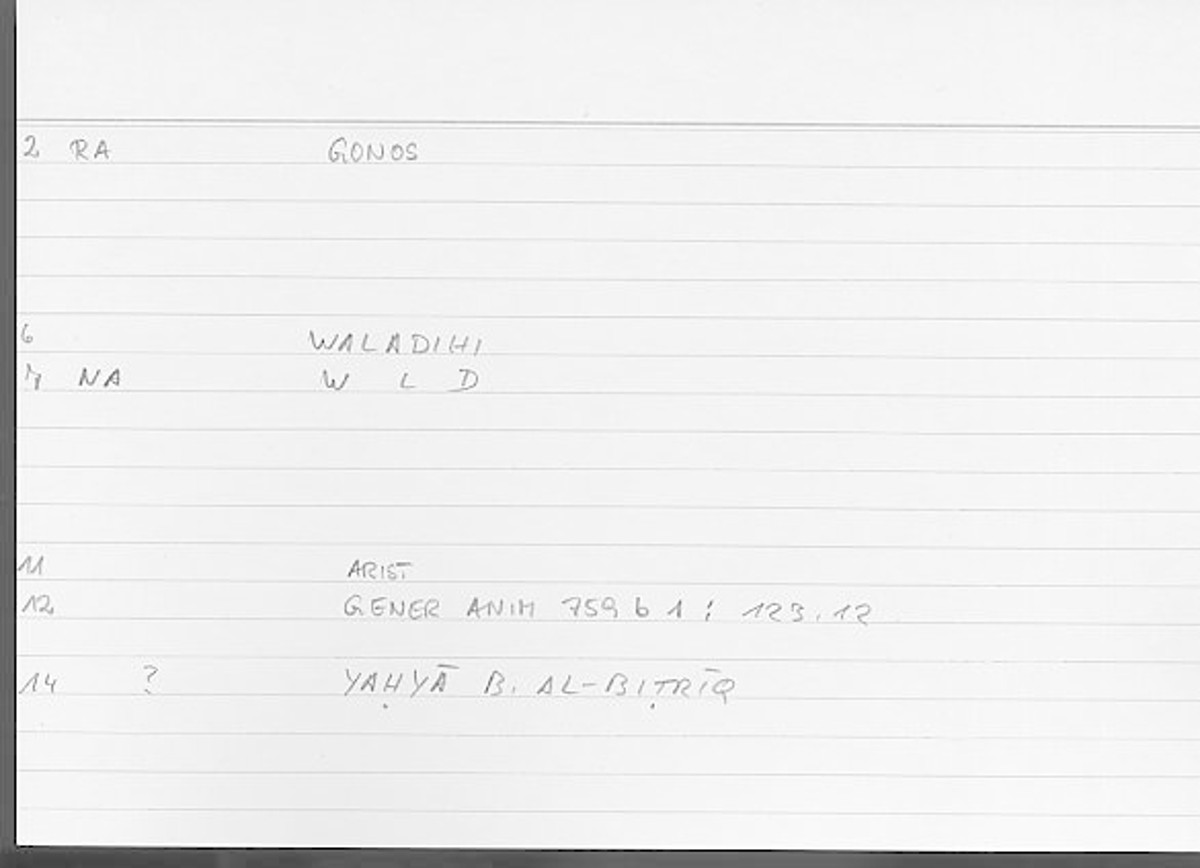 2 RA GONOS
6 WALADIHI
7 NA W L D
11 ARIST
12 GENER ANIM 759 b 1 ; 123.12
14 ? YAḤYĀ B. AL-BIṬRĪQ